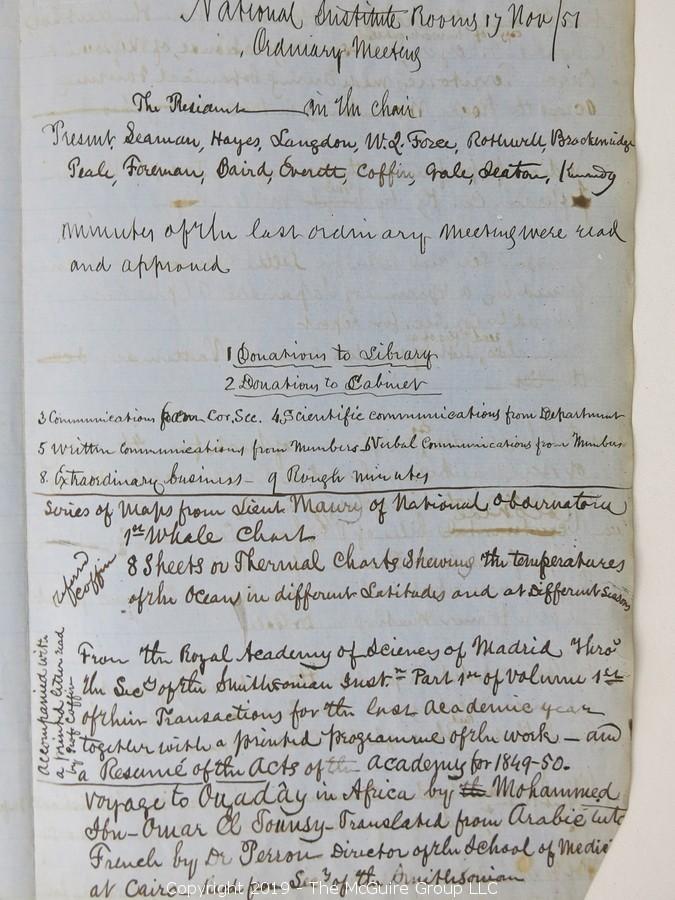 National Institute Rooms 17 Nov/51
Ordinary Meeting
The President — in the chair
Present Seaman, Hayes, Langdon, W.Q. Force, Rothwell, Brackenridge
Peale, Foreman, Baird, Everett, Coffin, Gale, Seaton, Kennedy
minutes of the last ordinary meeting were read
and approved
1 Donations to Library
2 Donations to Cabinet
3 Communications from Cor. Sec. 4, Scientific communications from Department
5 Written Communications from Members 6 Verbal Communications from Members
8. Extraordinary business — 9 Rough minutes
Series of Maps from Lieut Maury of National Observatory
1st Whale Chart
8 Sheets or Thermal Charts Shewing the temperatures
of the Oceans in different Latitudes and at Different Seasons
Coffin
Accompanied with
a printed letter read
by Prof Coffin
From the Royal Academy of Sciences of Madrid thro'
the Secy of the Smithsonian Inst.n Part 1st of Volume 1st
of their Transactions for the last Academic year
together with a printed programme of the work — and
a Resumé of the Acts of the Academy for 1849-50.
Voyage to Ouadây in Africa by the Mohammed
Ibn-Omar El Tounsy - Translated from Arabic into
French by Dr Perron Director of the School of Medici
at Cairo - Secy of the Smithsonian
Copyright 2019 - The McGuire Group LLC